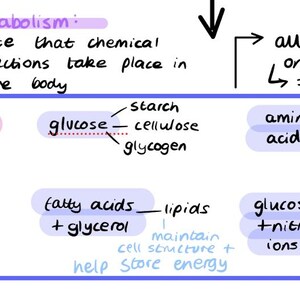 abolism:
e that chemical
ctions take place in
e body
all
or
glucose
starch
cellulose
glycogen
amin
acid
fatty acids
+ glycerol
lipids
maintain
cell structure +
help store energy
glucos
+nitr
ions